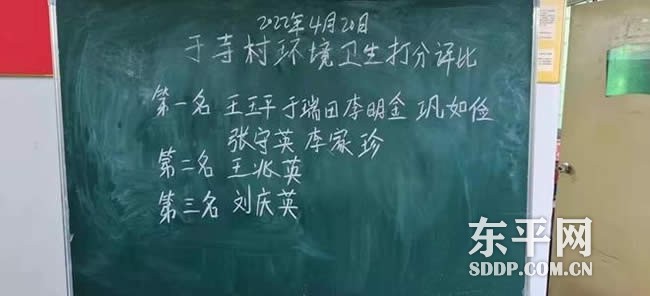 2022年4月20日
于寺村环境卫生打分评比
第一名 王玉平 于瑞田 李明金 巩如俭
张守英 李家珍
第二名 王兆英
第三名 刘庆英
东平网
SDDP.COM.CN